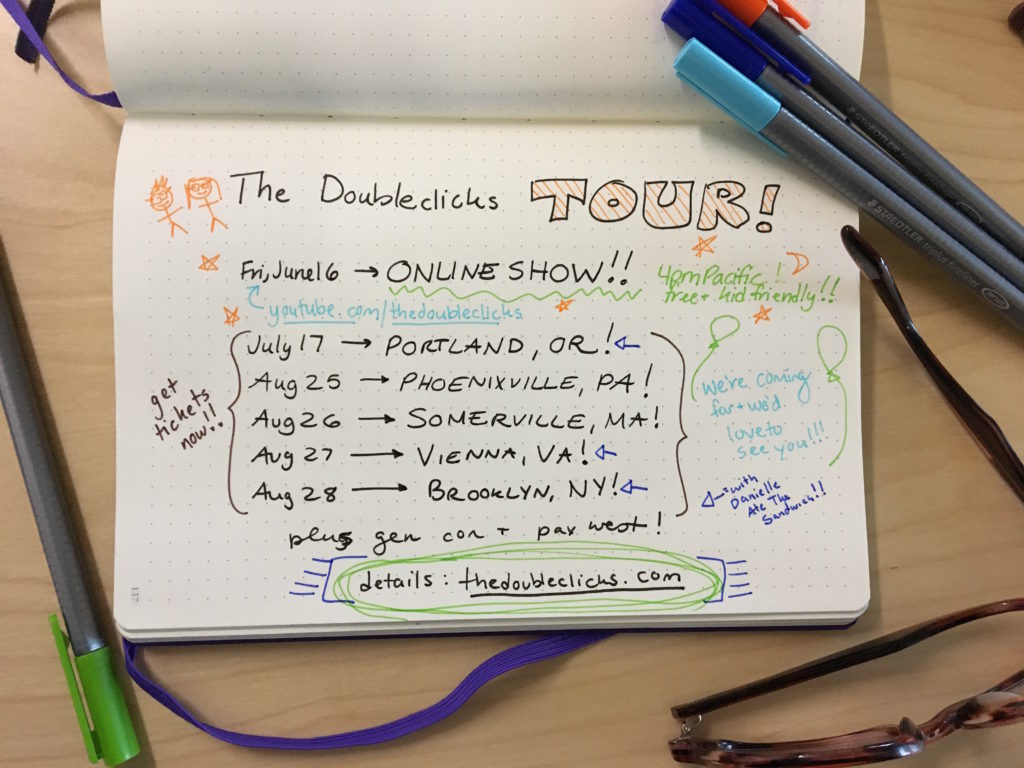 The Doubleclicks TOUR!
Fri, June 16 → ONLINE SHOW!!
4pm Pacific!
free + kid friendly!!
youtube.com/thedoubleclicks
get tickets now!!
July 17 → PORTLAND, OR!
Aug 25 → PHOENIXVILLE, PA!
Aug 26 → SOMERVILLE, MA!
Aug 27 → VIENNA, VA!
Aug 28 → BROOKLYN, NY!
we're coming
far + we'd
love to
see you!!!
= with
Danielle
Ate The
Sandwich!!
plus gen con + pax west!
details: thedoubleclicks.com
137
STAEDTLER triplus fineliner
STAEDTLER